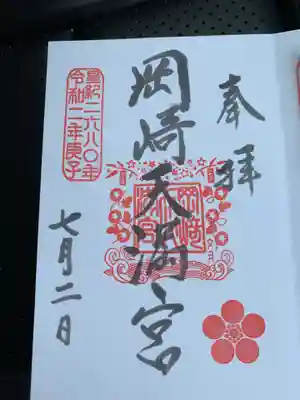 奉拝
岡崎天満宮
岡崎
天満宮
皇紀二六八〇年
令和二年庚子
七月二日